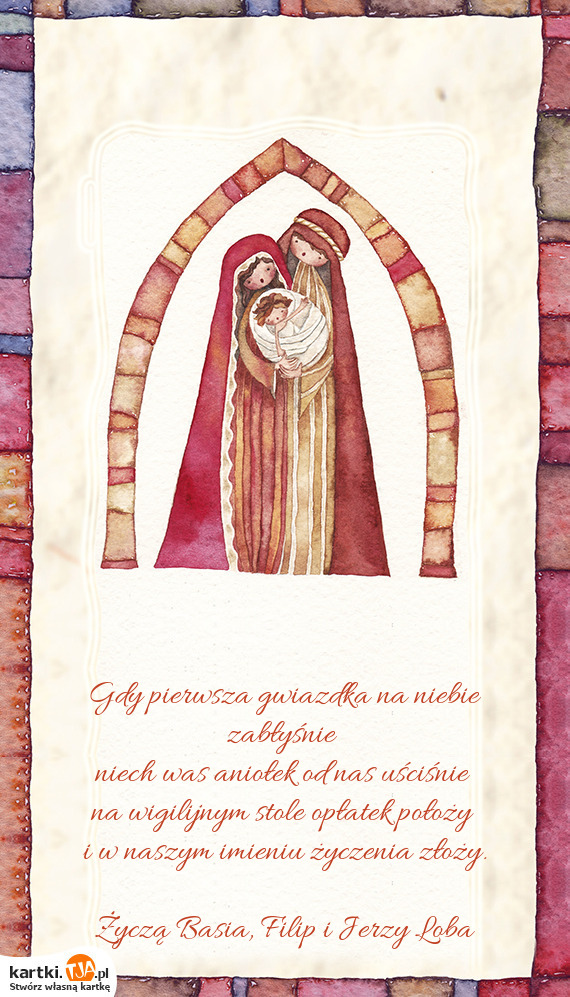 Gdy pierwsza gwiazdka na niebie
zabłyśnie
niech was aniołek od nas uściśnie
na wigilijnym stole opłatek położy
i w naszym imieniu życzenia złoży.
Życzą Basia, Filip i Jerzy Loba
kartki.TJA.pl
Stwórz własną kartkę